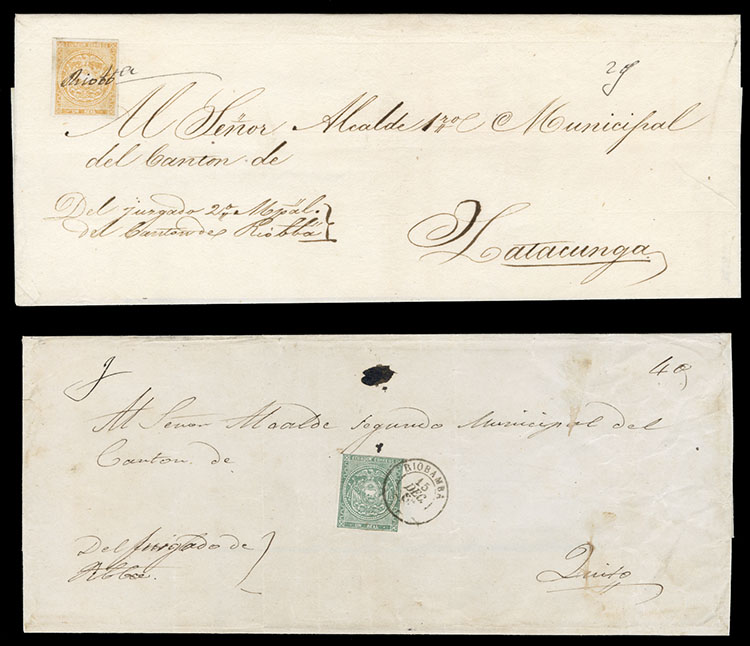 Riobba
2g
Al Señor Alcalde 1ro Municipal
del Canton de
Del jurgado 2º Mpäl.
del Canton de Riobbá
Latacunga
40
Al Señor Alcalde segundo Municipal del
Canton de
UN REAL
RIOBAMBA
15
DEC.
Del Jurgado de
Rbba.
Quito